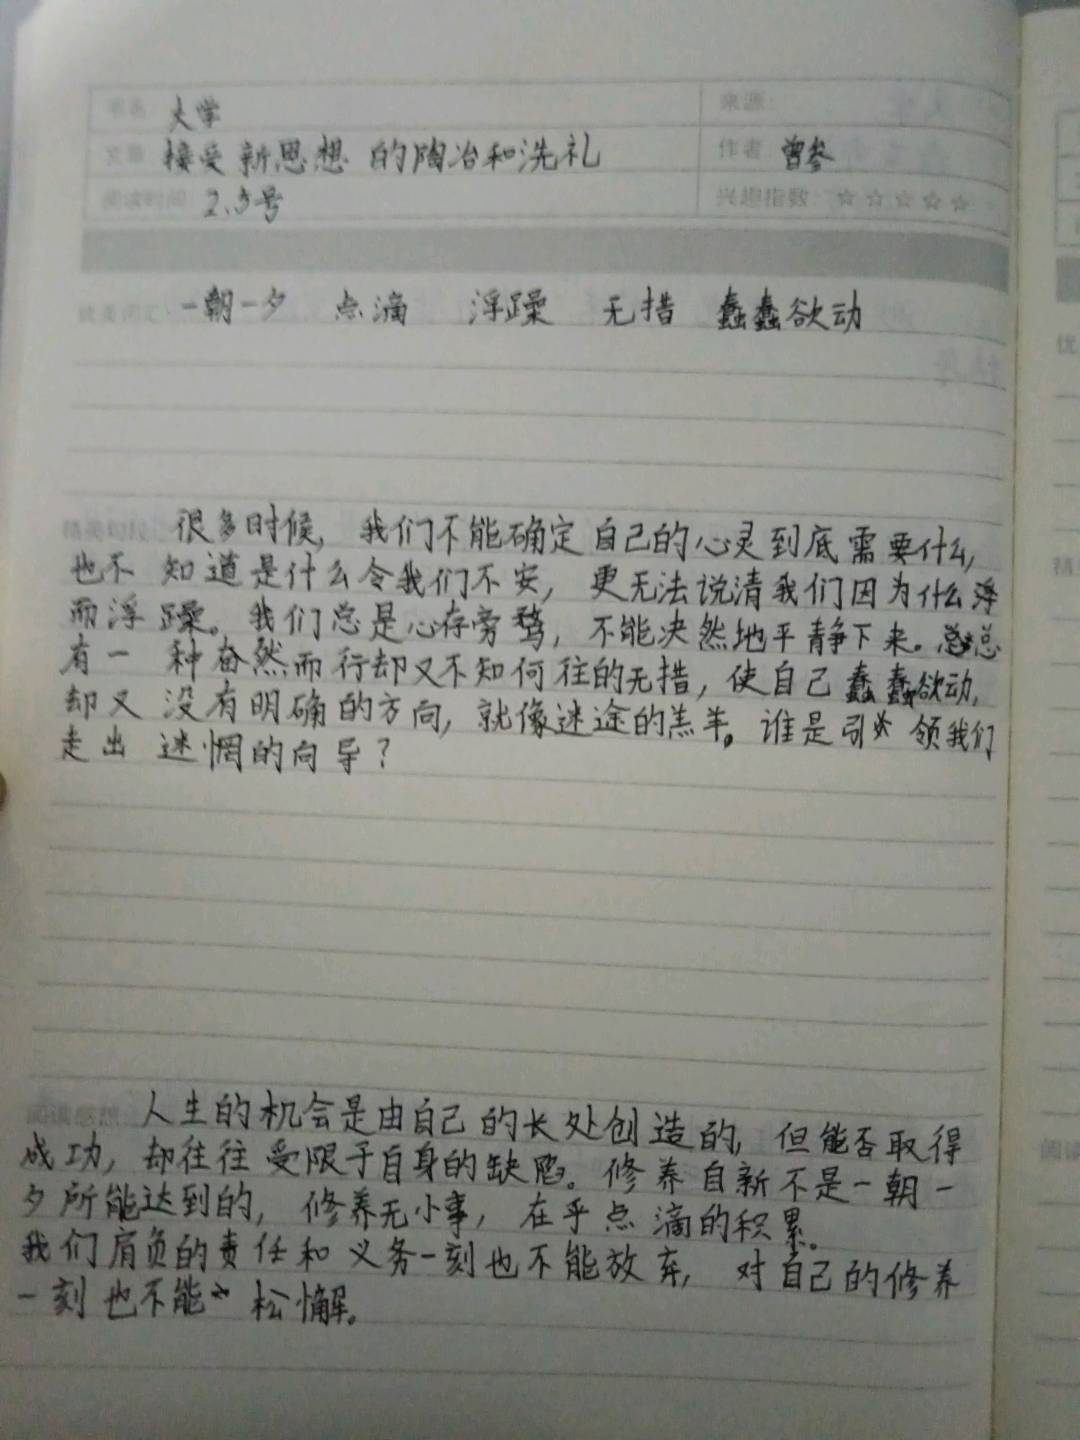 书名 大学 来源:
文章 接受新思想 的陶冶和洗礼 作者 曾参
阅读时间 2.3号 兴趣指数: ☆☆☆☆☆
优美词汇 一朝一夕 点滴 浮躁 无措 蠢蠢欲动
精美句段 很多时候, 我们不能确定自己的心灵到底需要什么,
也不知道是什么令我们不安, 更无法说清我们因为什么浮
而浮躁。我们总是心存旁骛, 不能决然地平静下来。总
有一种奋然而行却又不知何往的无措, 使自己蠢蠢欲动,
却又没有明确的方向, 就像迷途的羔羊。谁是引 领我们
走出迷惘的向导?
阅读感想 人生的机会是由自己的长处创造的, 但能否取得
成功, 却往往受限于自身的缺陷。修养自新不是一朝一
夕所能达到的, 修养无小事, 在乎点滴的积累。
我们肩负的责任和义务一刻也不能放弃, 对自己的修养
一刻也不能 松懈。
优
精
阅读